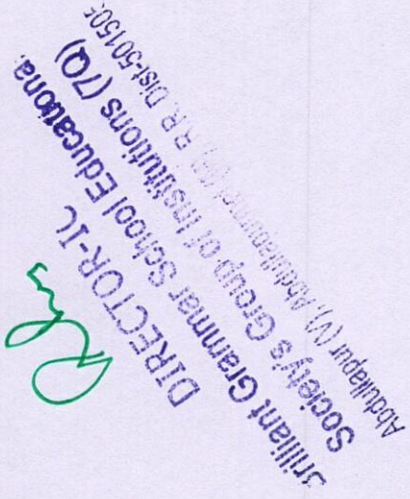 DIRECTOR-IC
Brilliant Grammar School Educational
Society's Group of Institutions (7Q)
Abdullapur (V), R.R. Dist-50150